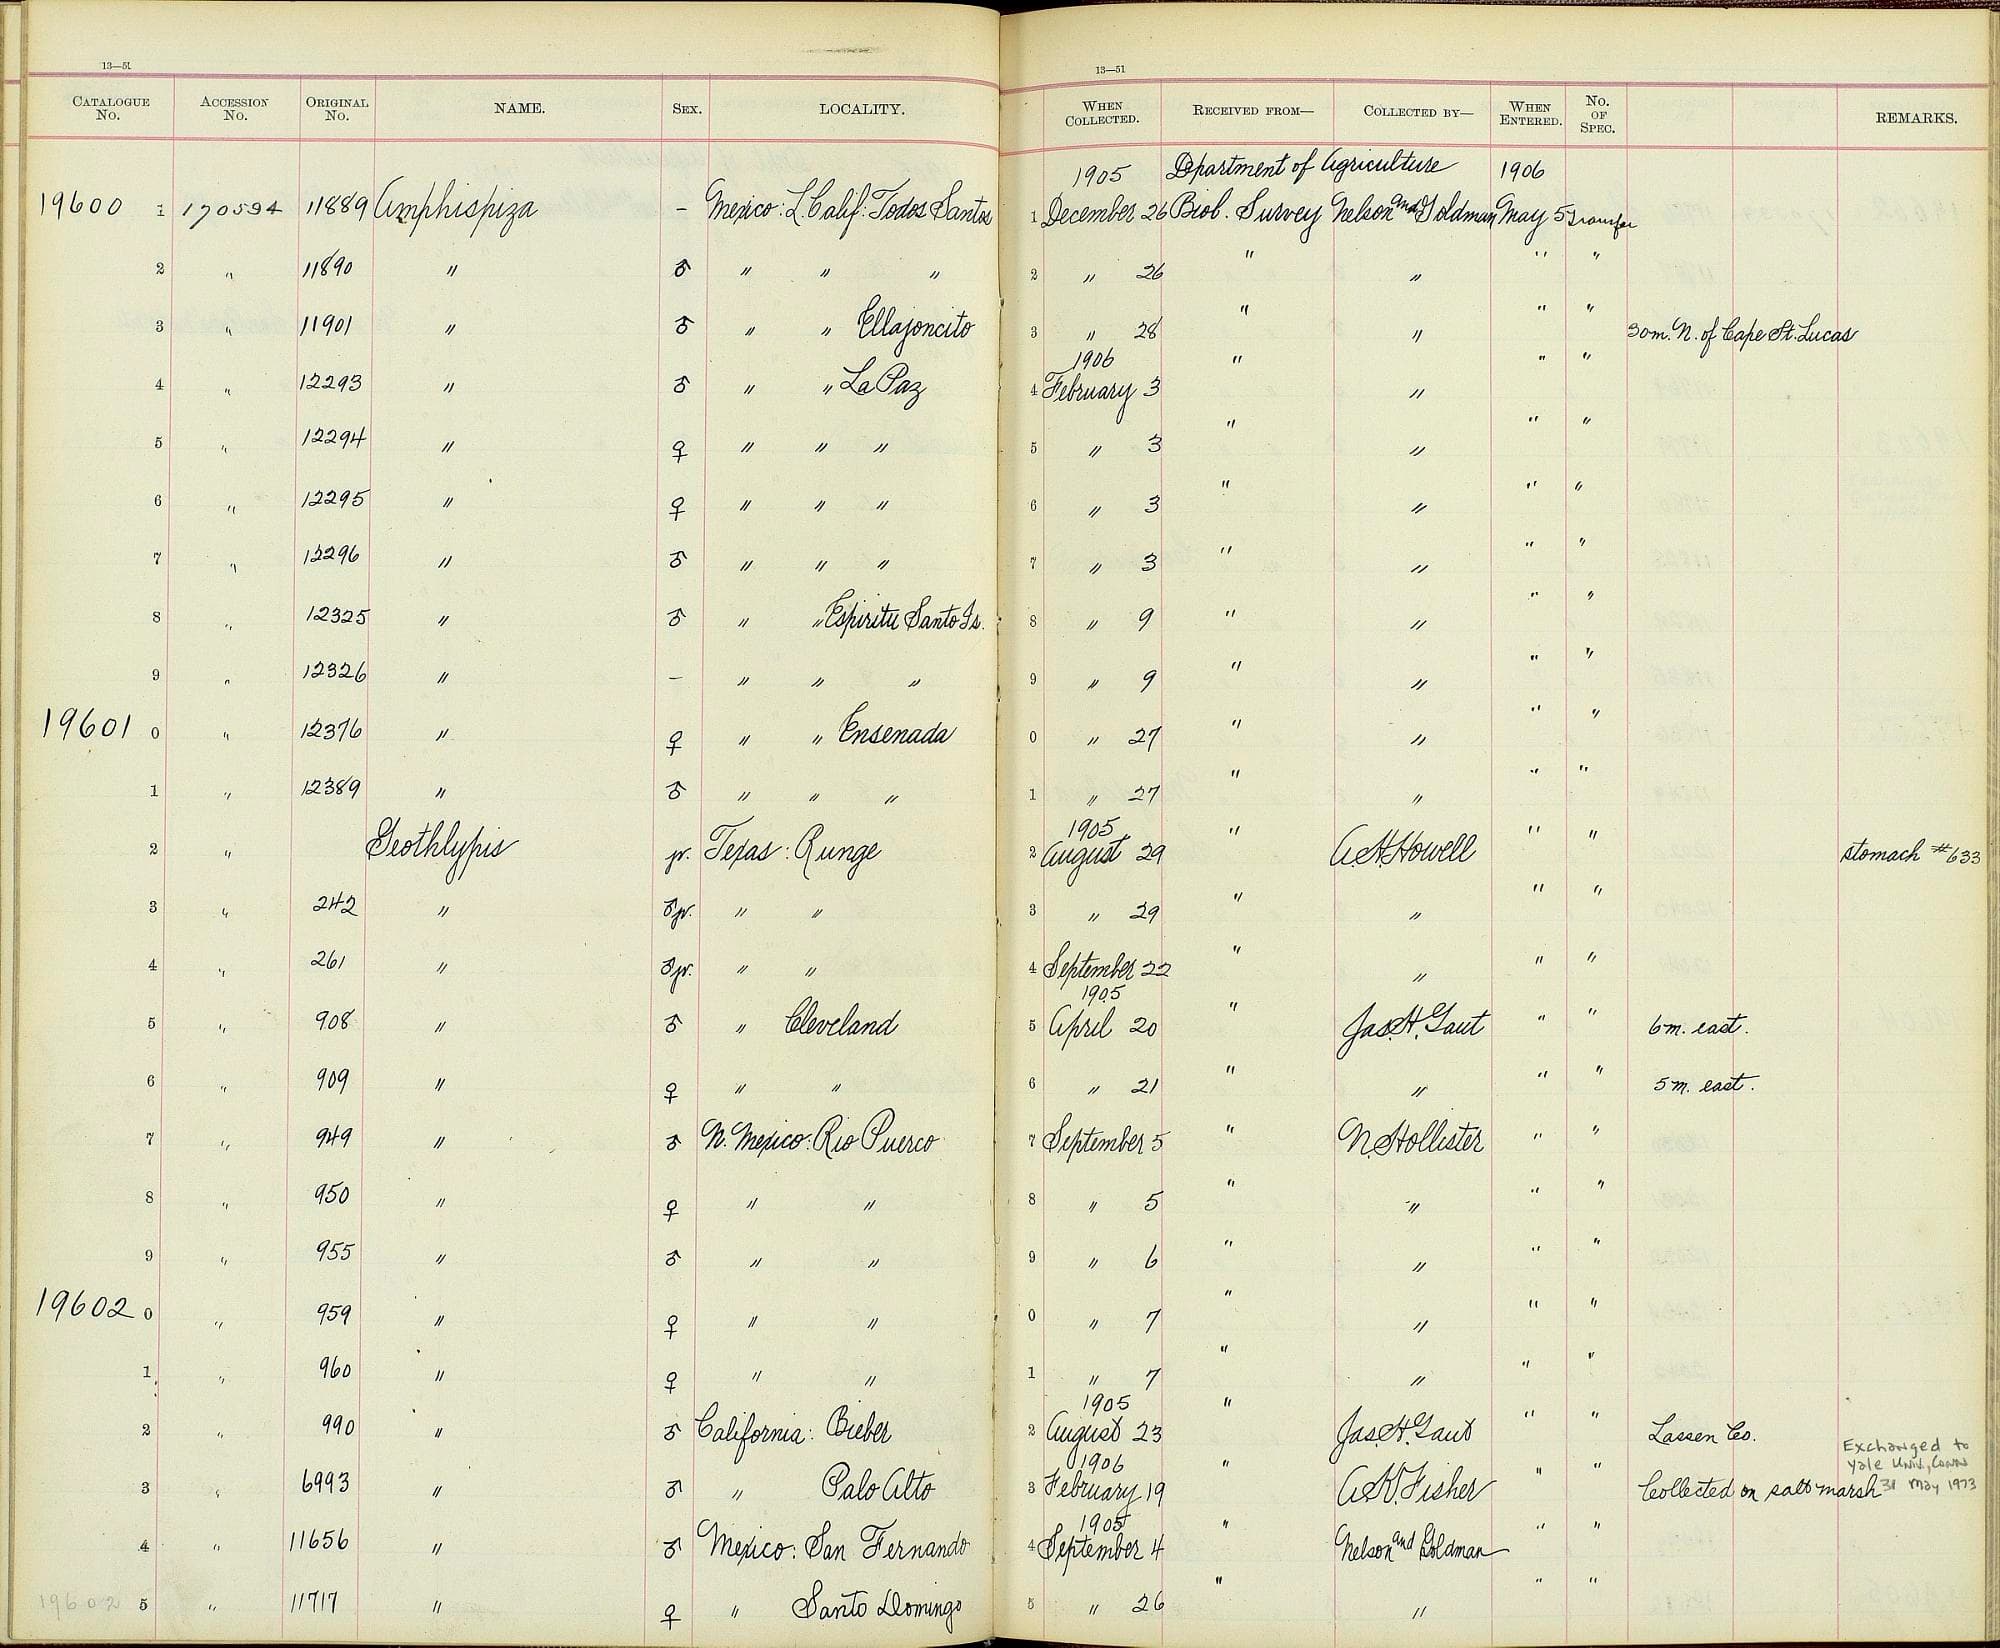 13—51
CATALOGUE No. ACCESSION No. ORIGINAL No. NAME. SEX. LOCALITY.
13—51
WHEN COLLECTED. RECEIVED FROM— COLLECTED BY— WHEN ENTERED. No. OF SPEC. REMARKS.
1905 Department of Agriculture 1906
19600 1 170594 11889 Amphispiza – Mexico: L. Calif: Todos Santos 1 December 26 Biol. Survey Nelson and Goldman May 5 Transfer
2 " 11890 " ♂ " " " 2 " 26 " " " "
3 " 11901 " ♂ " " Ellajoncito 3 " 28 " " " " 30 m. N. of Cape St. Lucas
1906
4 " 12293 " ♂ " " La Paz 4 February 3 " " " "
5 " 12294 " ♀ " " " 5 " 3 " " " "
6 " 12295 " ♀ " " " 6 " 3 " " " "
7 " 12296 " ♂ " " " 7 " 3 " " " "
8 " 12325 " ♂ " " Espiritu Santo Is. 8 " 9 " " " "
9 " 12326 " – " " " 9 " 9 " " " "
19601 0 " 12376 " ♀ " " Ensenada 0 " 27 " " " "
1 " 12389 " ♂ " " " 1 " 27 " " " "
1905
2 " Geothlypis jr. Texas: Runge 2 August 29 " A.H. Howell " " stomach #633
3 " 242 " ♂ jr. " " 3 " 29 " " " "
4 " 261 " ♂ jr. " " 4 September 22 " " " "
1905
5 " 908 " ♂ " Cleveland 5 April 20 " Jas. H. Gaut " " 6 m. east.
6 " 909 " ♀ " " 6 " 21 " " " " 5 m. east.
7 " 949 " ♂ N. Mexico: Rio Puerco 7 September 5 " N. Hollister " "
8 " 950 " ♀ " " 8 " 5 " " " "
9 " 955 " ♂ " " 9 " 6 " " " "
19602 0 " 959 " ♀ " " 0 " 7 " " " "
1 " 960 " ♀ " " 1 " 7 " " " "
1905
2 " 990 " ♂ California: Bieber 2 August 23 " Jas. H. Gaut " " Lassen Co.
1906
3 " 6993 " ♂ " Palo Alto 3 February 19 " A.K. Fisher " " Collected on salt marsh Exchanged to Yale Univ., Conn 31 May 1973
1905
4 " 11656 " ♂ Mexico: San Fernando 4 September 4 " Nelson and Goldman " "
19602 5 " 11717 " ♀ " Santo Domingo 5 " 26 " " " "